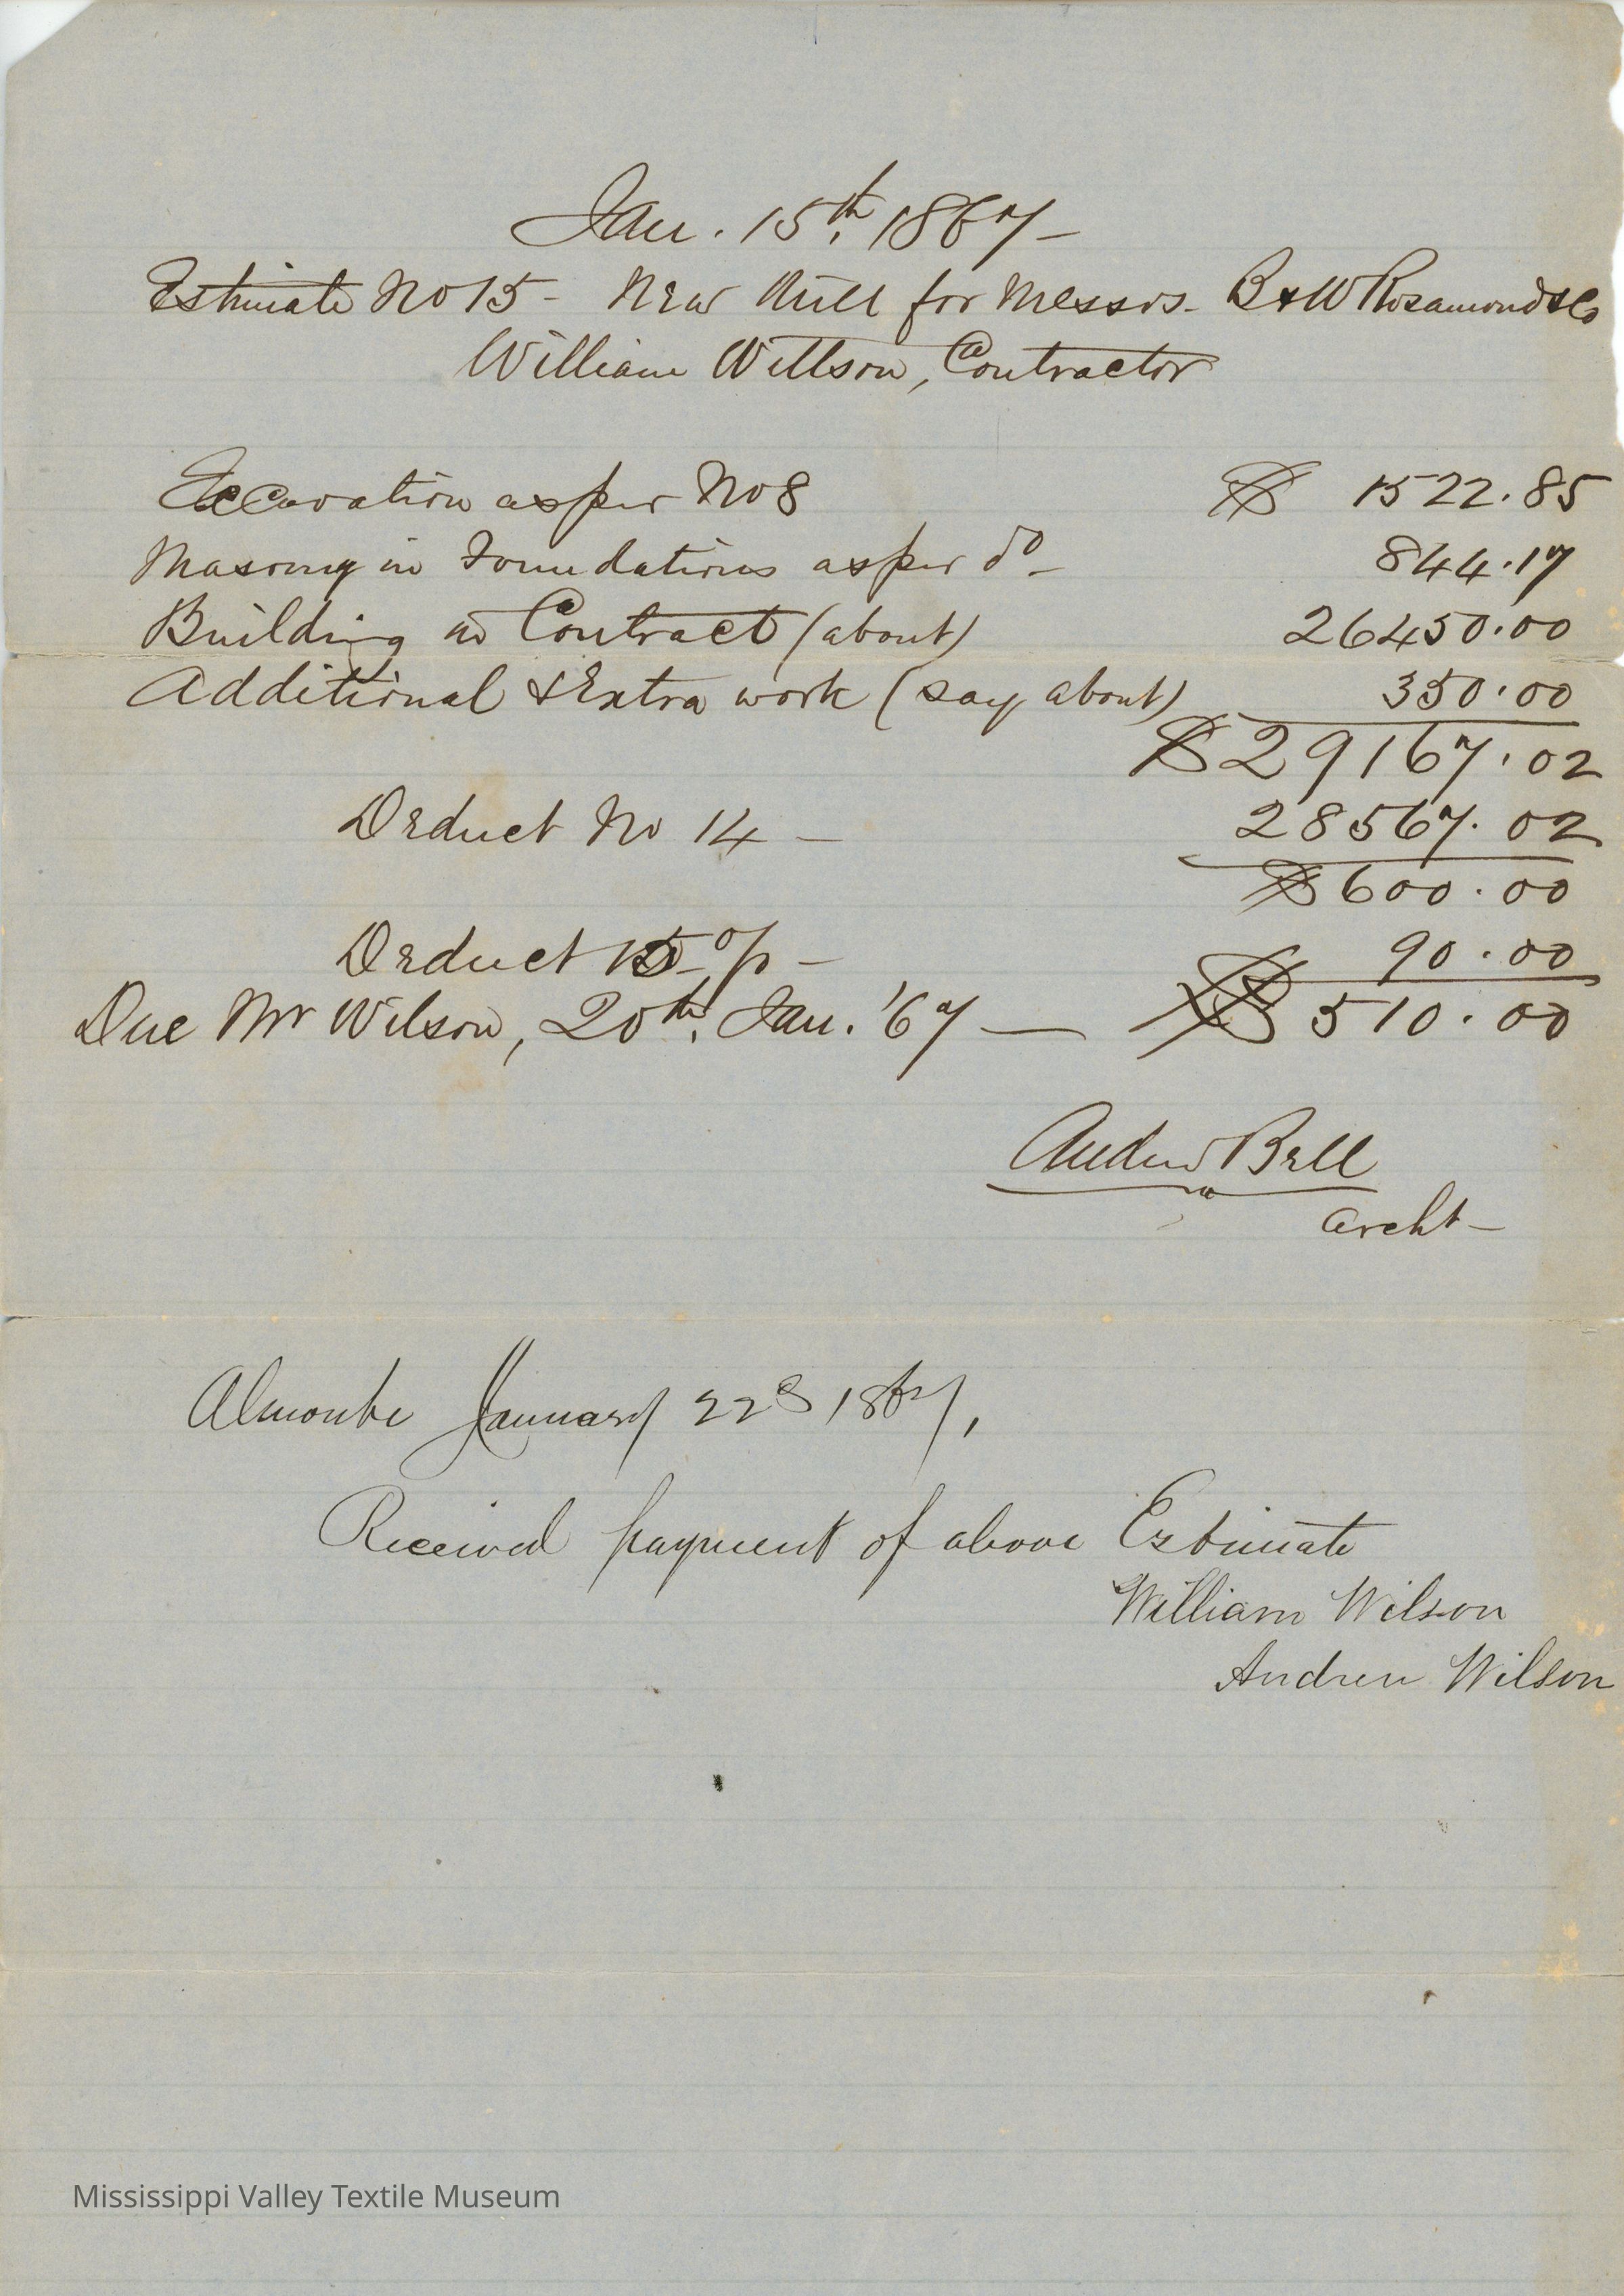 Jan. 15th, 1867 –
Estimate No 15 – New Mill for Messrs. B & W Rosamond & Co
William Willson, Contractor
Excavation as per No 8 $ 1522.85
Masonry in Foundations as per do – 844.17
Building in Contract (about) 26450.00
Additional & Extra work (say about) 350.00
$29167.02
Deduct No 14 – 28567.02
$600.00
Deduct 15 o/o – 90.00
Due Mr Wilson, 20th, Jan. '67 — $510.00
Andrew Bell
Archt –
Almonte January 22d 1867,
Received payment of above Estimate
William Wilson
Andrew Wilson
Mississippi Valley Textile Museum